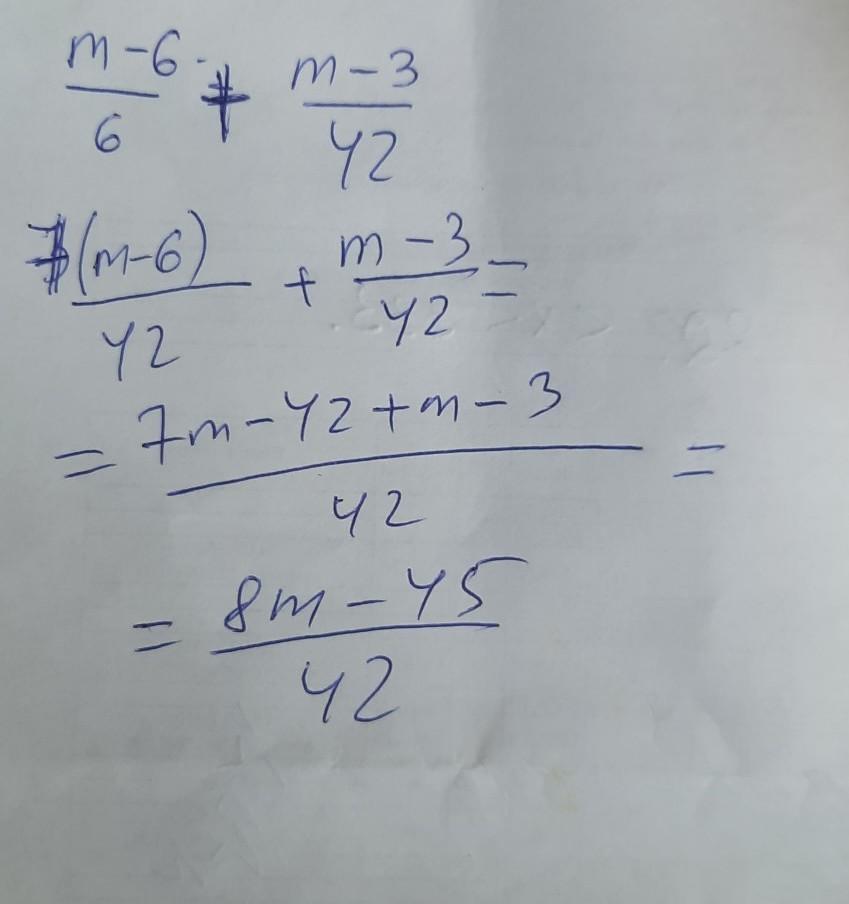 m-6/6 + m-3/42
7(m-6)/42 + m-3/42 =
= 7m-42+m-3/42 =
= 8m-45/42